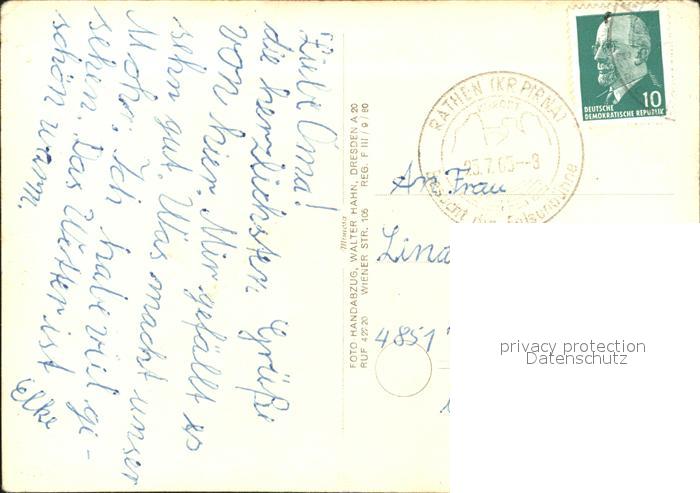 Liebe Oma!
die herzlichsten Grüße
von hier. Mir gefällt es
sehr gut. Was macht unser
Mohr. Ich habe viel ge-
sehen. Das Wetter ist
schön warm.
Elke
Mimosa
FOTO-HANDABZUG, WALTER HAHN, DRESDEN A 20
RUF 4 REG. F III / 9 / 60
WIENER STR. 105
RATHEN (KR PIRNA)
KURORT
25.7.65-8
Besucht die Felsenbühne
DEUTSCHE
DEMOKRATISCHE REPUBLIK
10
An Frau
Lina
4851
privacy protection
Datenschutz